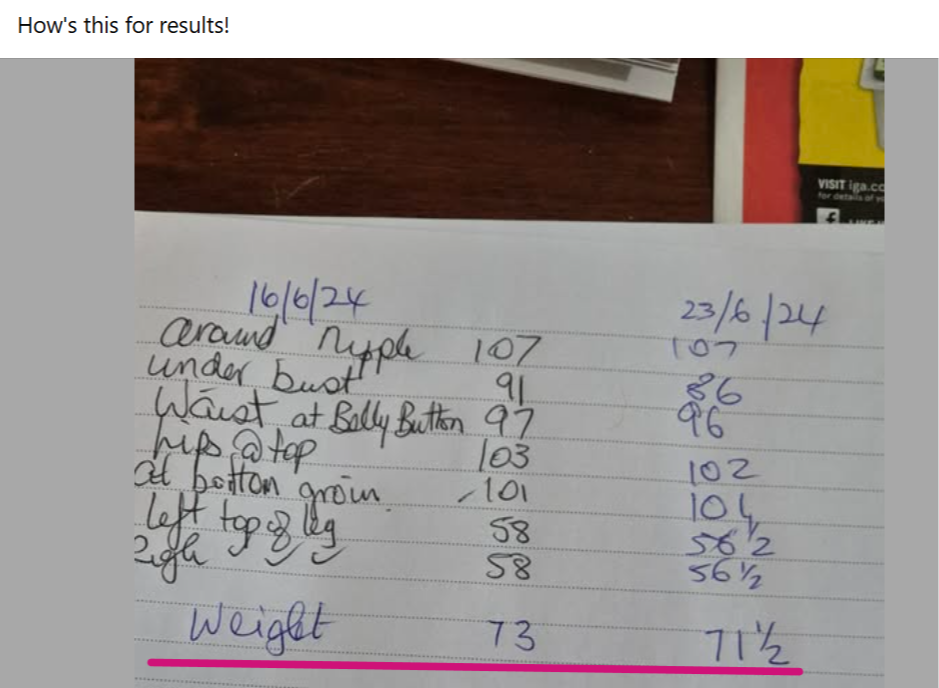 How's this for results!
VISIT iga.co
for details of yo
f LIKE U
16/6/24 23/6/24
around nipple 107 107
under bust 91 86
Waist at Belly Button 97 96
hips @ top 103 102
at bottom groin 101 104
left top of leg 58 56 1/2
Righ 58 56 1/2
Weight 73 71 1/2